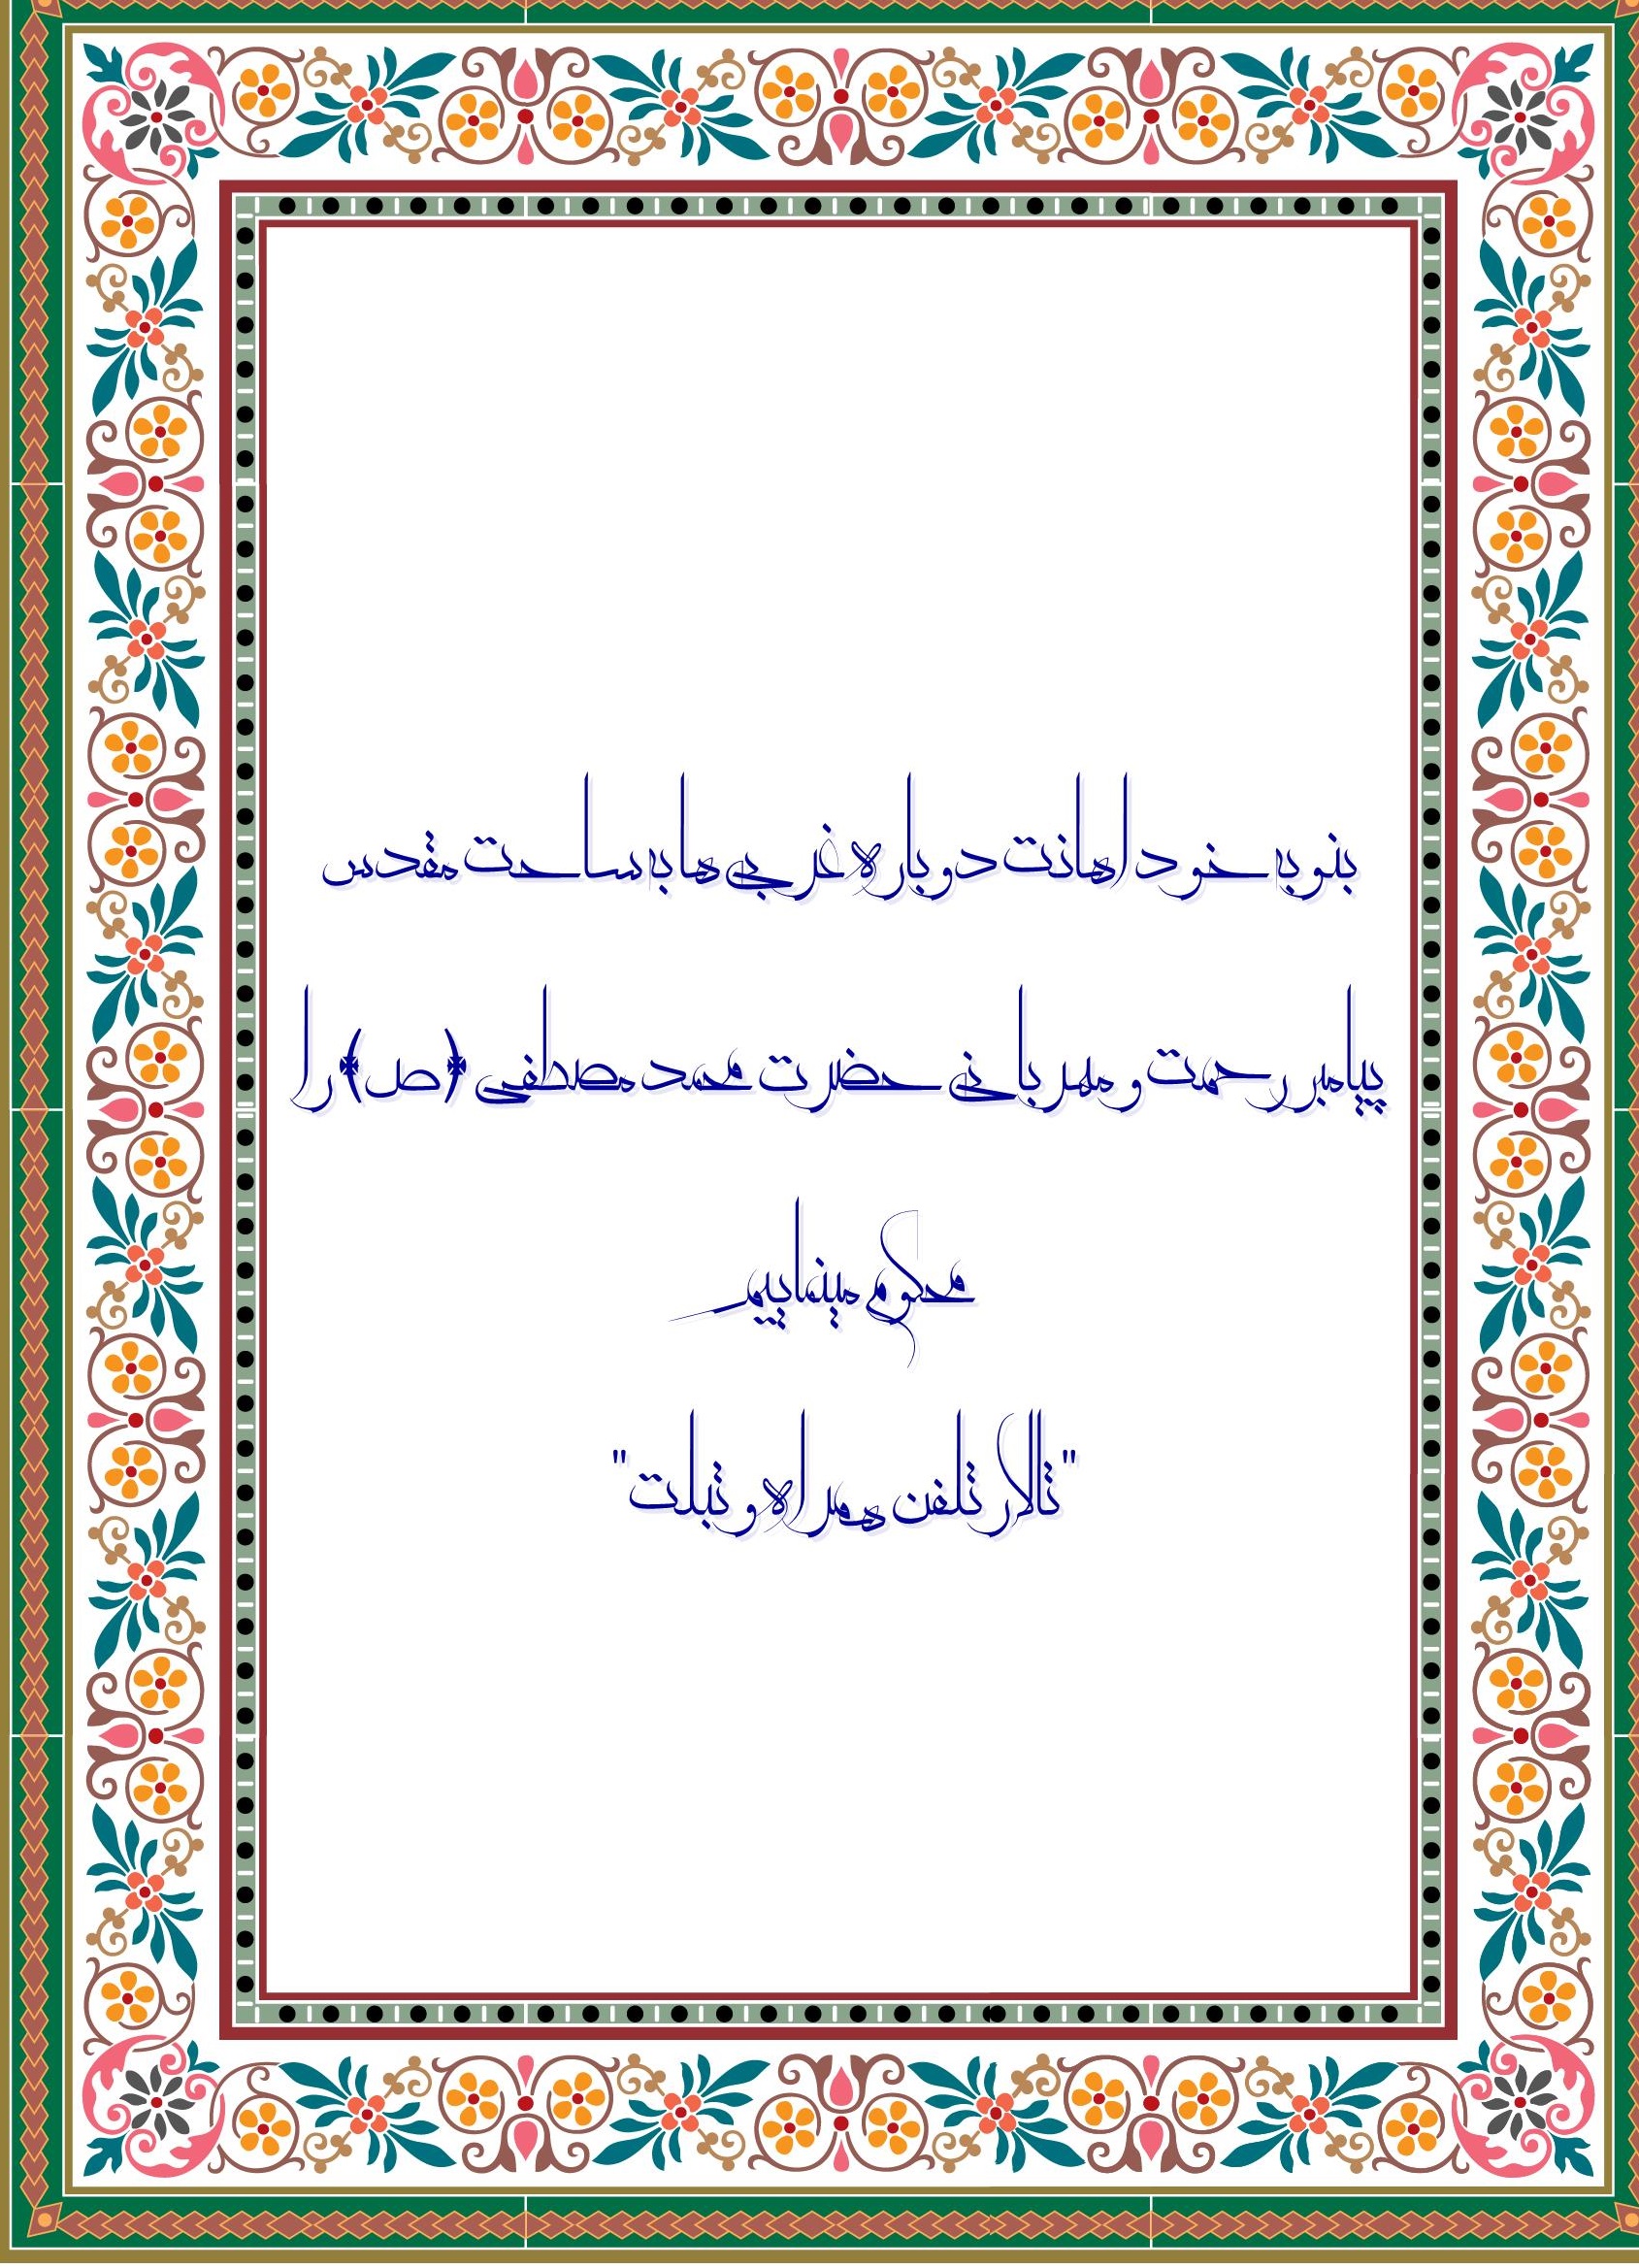 بنوبه خود اهانت دوباره غربی ها به ساحت مقدس
پیامبر رحمت و مهربانی حضرت محمد مصطفی (ص) را
محکوم مینماییم
"تالار تلفن همراه و تبلت"